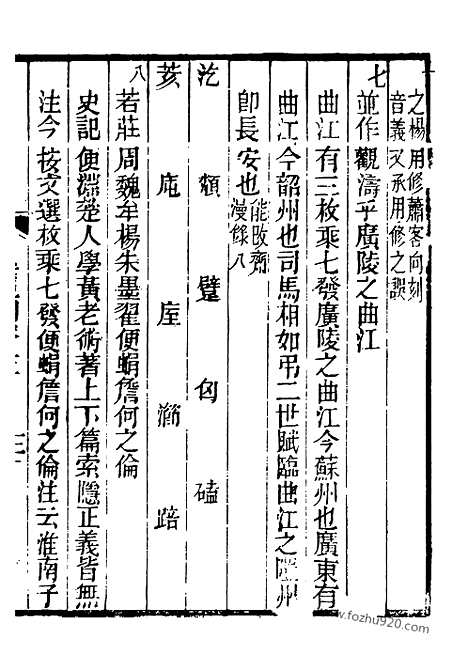 之楊用修蕭客向刻
音義又承用修之誤
七
並作觀濤乎廣陵之曲江
曲江有三枚乘七發廣陵之曲江今蘇州也廣東有
曲江今韶州也司馬相如弔二世賦臨曲江之隑州
卽長安也能改齋
漫錄八
汔 頹 匈 磕
荄 庉 庢 踣
八
若莊周魏牟楊朱墨翟便蜎詹何之倫
史記便淵楚人學黃老術著上下篇索隱正義皆無
注今按文選枚乘七發便蜎詹何之倫注云淮南子
www.fozhu920.com